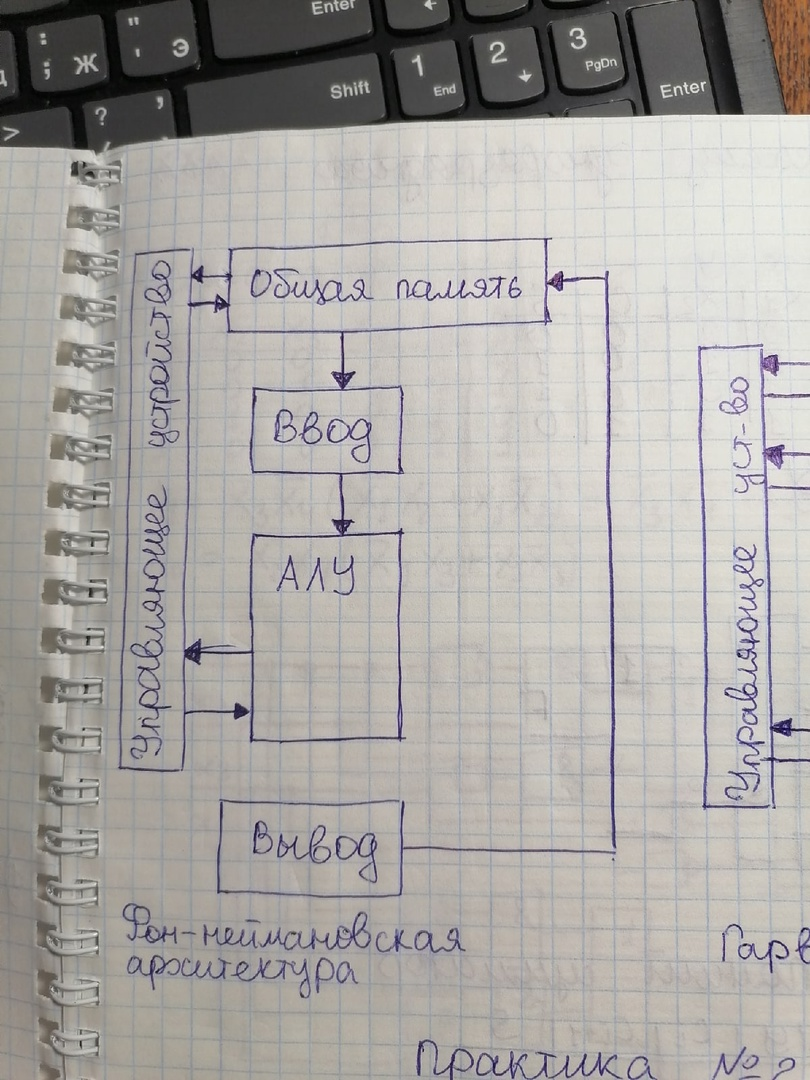 Enter
Ж
Э
Shift
1
End
2
3
PgDn
Enter
?
>
Управляющее устройство
Общая память
Ввод
АЛУ
Вывод
Фон-неймановская
архитектура
Управляющее уст-во
Гарв
Практика №2